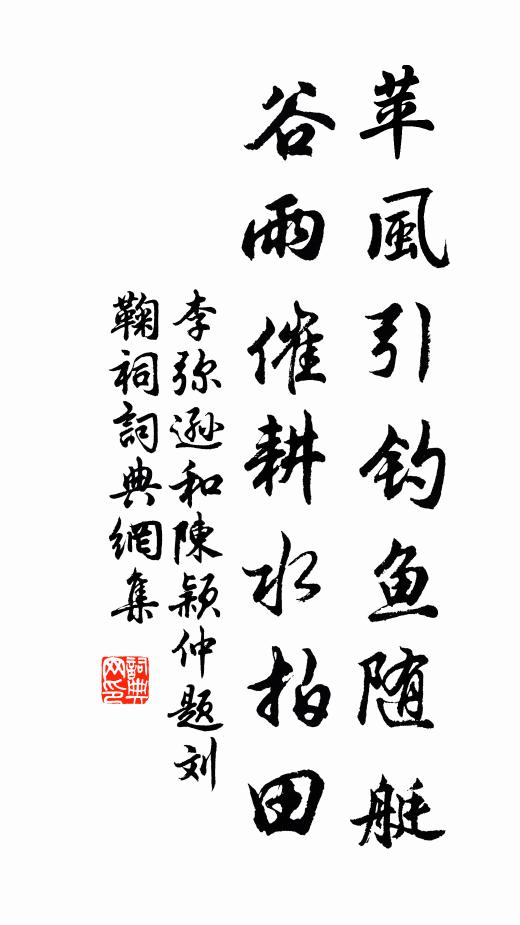 苹風引钓鱼随艇
谷雨催耕水拍田
李弥遜和陳颖仲题刘
鞠祠詞典網集
詞典网印